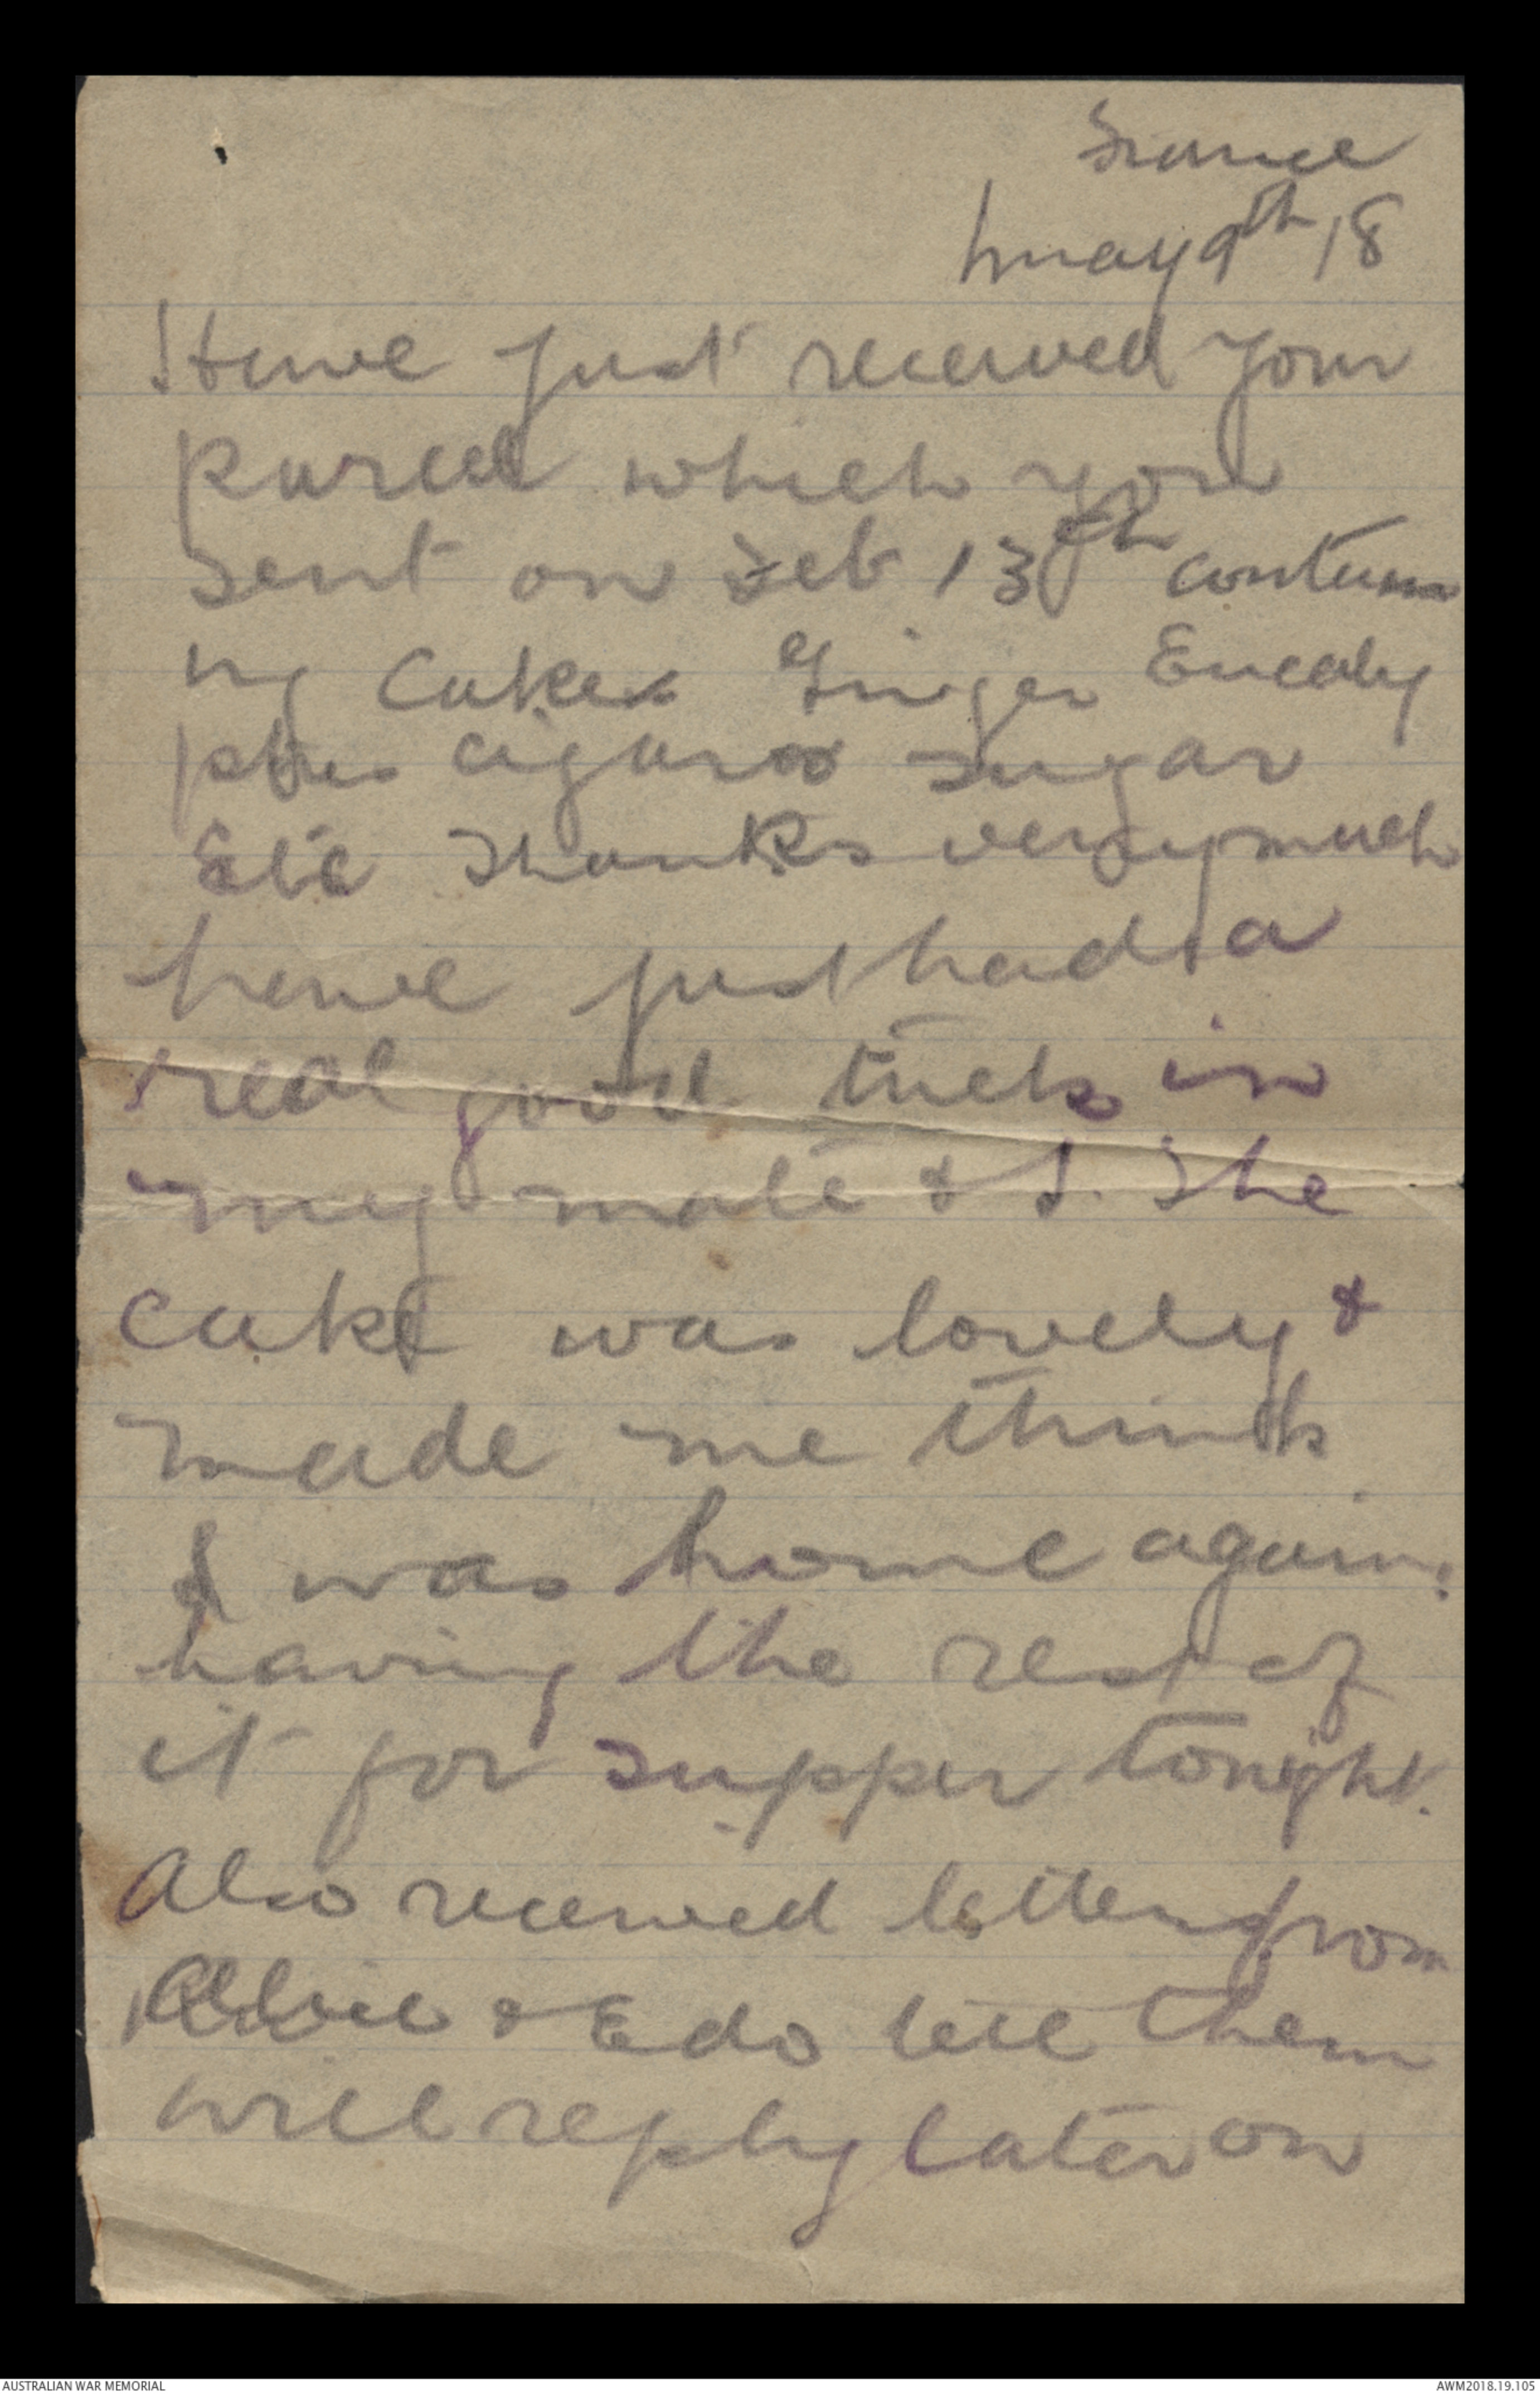 France
May 9th 18
Have just received your
parcel which you
sent on Feb 13th contain
ng Cakes Ginger Eucaly
ptus cigars sugar
Etc Thanks very much
have just had a
real good tuck in
my mate & I. The
cake was lovely &
made me think
I was home again.
having the rest of
it for supper tonight.
Also received letters from
& Edo tell them
will reply later on
AUSTRALIAN WAR MEMORIAL
AWM2018.19.105